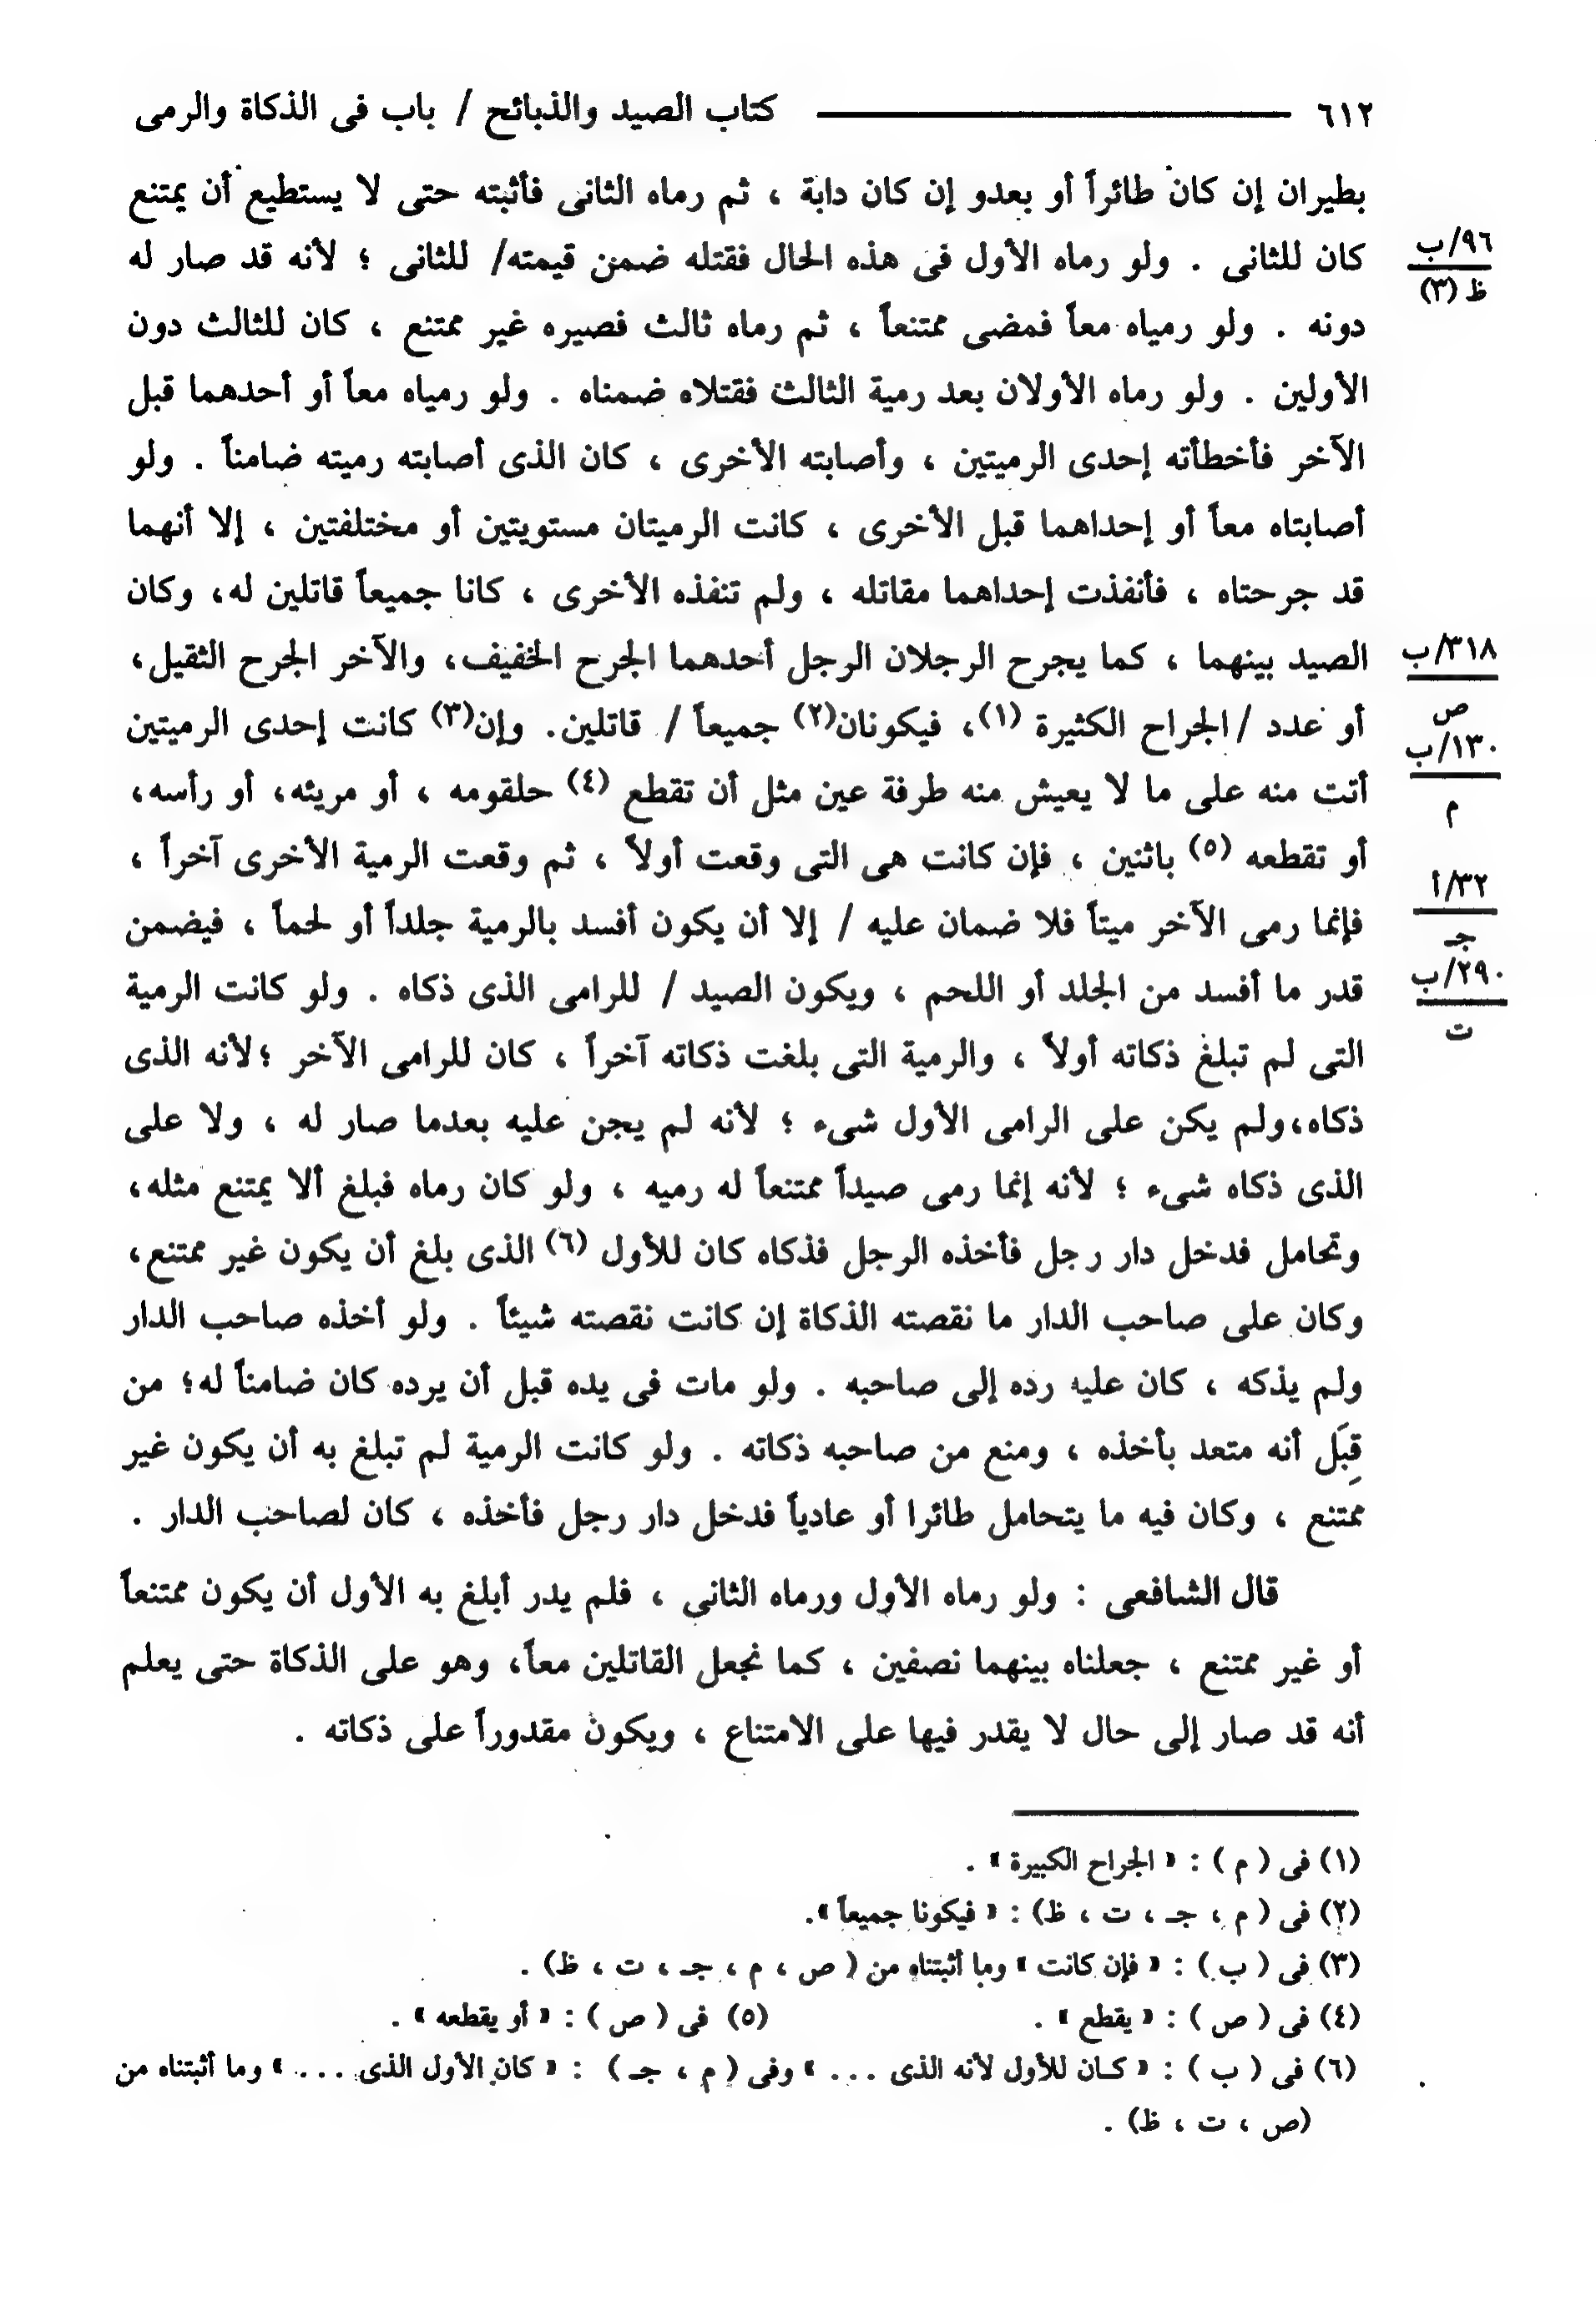 ٦١٢ كتاب الصيد والذبائح / باب فى الذكاة والرمى
بطيران إن كان طائراً أو بعدو إن كان دابة ، ثم رماه الثانى فأثبته حتى لا يستطيع أن يمتنع
كان للثانى . ولو رماه الأول فى هذه الحال فقتله ضمن قيمته/ للثانى ؛ لأنه قد صار له
٩٦/ب
ظ (٣)
دونه . ولو رمياه معاً فمضى ممتنعاً ، ثم رماه ثالث فصيره غير ممتنع ، كان للثالث دون
الأولين . ولو رماه الأولان بعد رمية الثالث فقتلاه ضمناه . ولو رمياه معاً أو أحدهما قبل
الآخر فأخطأته إحدى الرميتين ، وأصابته الأخرى ، كان الذى أصابته رميته ضامناً . ولو
أصابتاه معاً أو إحداهما قبل الأخرى ، كانت الرميتان مستويتين أو مختلفتين ، إلا أنهما
قد جرحتاه ، فأنفذت إحداهما مقاتله ، ولم تنفذه الأخرى ، كانا جميعاً قاتلين له، وكان
الصيد بينهما ، كما يجرح الرجلان الرجل أحدهما الجرح الخفيف، والآخر الجرح الثقيل،
٣١٨/ب
ص
أو عدد /الجراح الكثيرة (١)، فيكونان(٢) جميعاً / قاتلين. وإن(٣) كانت إحدى الرميتين
١٣٠/ب
م
أتت منه على ما لا يعيش منه طرفة عين مثل أن تقطع (٤) حلقومه ، أو مريئه، أو رأسه،
أو تقطعه (٥) باثنين ، فإن كانت هى التى وقعت أولاً ، ثم وقعت الرمية الأخرى آخراً ،
٣٢/أ
جـ
فإنما رمى الآخر ميتاً فلا ضمان عليه / إلا أن يكون أفسد بالرمية جلداً أو لحماً ، فيضمن
قدر ما أفسد من الجلد أو اللحم ، ويكون الصيد / للرامى الذى ذكاه . ولو كانت الرمية
٢٩٠/ب
ت
التى لم تبلغ ذكاته أولاً ، والرمية التى بلغت ذكاته آخراً ، كان للرامى الآخر ؛لأنه الذى
ذكاه،ولم يكن على الرامى الأول شىء ؛ لأنه لم يجن عليه بعدما صار له ، ولا على
الذى ذكاه شىء ؛ لأنه إنما رمى صيداً ممتنعاً له رميه ، ولو كان رماه فبلغ ألا يمتنع مثله،
وتحامل فدخل دار رجل فأخذه الرجل فذكاه كان للأول (٦) الذى بلغ أن يكون غير ممتنع،
وكان على صاحب الدار ما نقصته الذكاة إن كانت نقصته شيئاً . ولو أخذه صاحب الدار
ولم يذكه ، كان عليه رده إلى صاحبه . ولو مات فى يده قبل أن يرده كان ضامناً له؛ من
قِبَلِ أنه متعد بأخذه ، ومنع من صاحبه ذكاته . ولو كانت الرمية لم تبلغ به أن يكون غير
ممتنع ، وكان فيه ما يتحامل طائرا أو عادياً فدخل دار رجل فأخذه ، كان لصاحب الدار .
قال الشافعى : ولو رماه الأول ورماه الثانى ، فلم يدر أبلغ به الأول أن يكون ممتنعاً
أو غير ممتنع ، جعلناه بينهما نصفين ، كما نجعل القاتلين معاً، وهو على الذكاة حتى يعلم
أنه قد صار إلى حال لا يقدر فيها على الامتناع ، ويكون مقدوراً على ذكاته .
(١) فى ( م ) : « الجراح الكبيرة » .
(٢) فى ( م ، جـ ، ت ، ظ) : « فيكونا جميعاً ».
(٣) فى ( ب ) : « فإن كانت » وما أثبتناه من ( ص ، م ، جـ ، ت ، ظ) .
(٤) فى ( ص ) : « يقطع » . (٥) فى ( ص ) : « أو يقطعه » .
(٦) فى ( ب ) : « كـان للأول لأنه الذى . . . » وفى ( م ، جـ ) : « كان الأول الذى . . . » وما أثبتناه من
(ص ، ت ، ظ) .